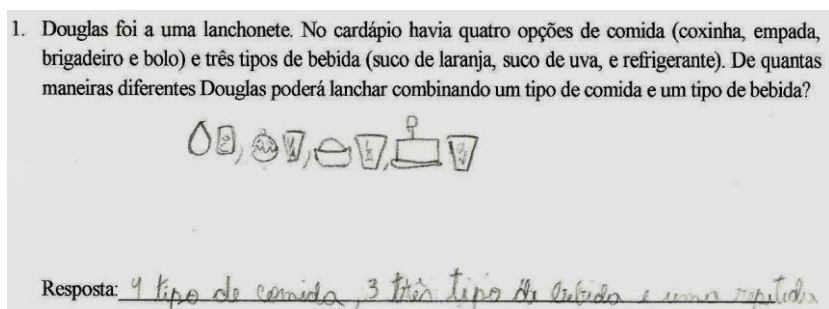 1. Douglas foi a uma lanchonete. No cardápio havia quatro opções de comida (coxinha, empada,
brigadeiro e bolo) e três tipos de bebida (suco de laranja, suco de uva, e refrigerante). De quantas
maneiras diferentes Douglas poderá lanchar combinando um tipo de comida e um tipo de bebida?
Resposta: 4 tipo de comida, 3 três tipo de bebida e uma repetida